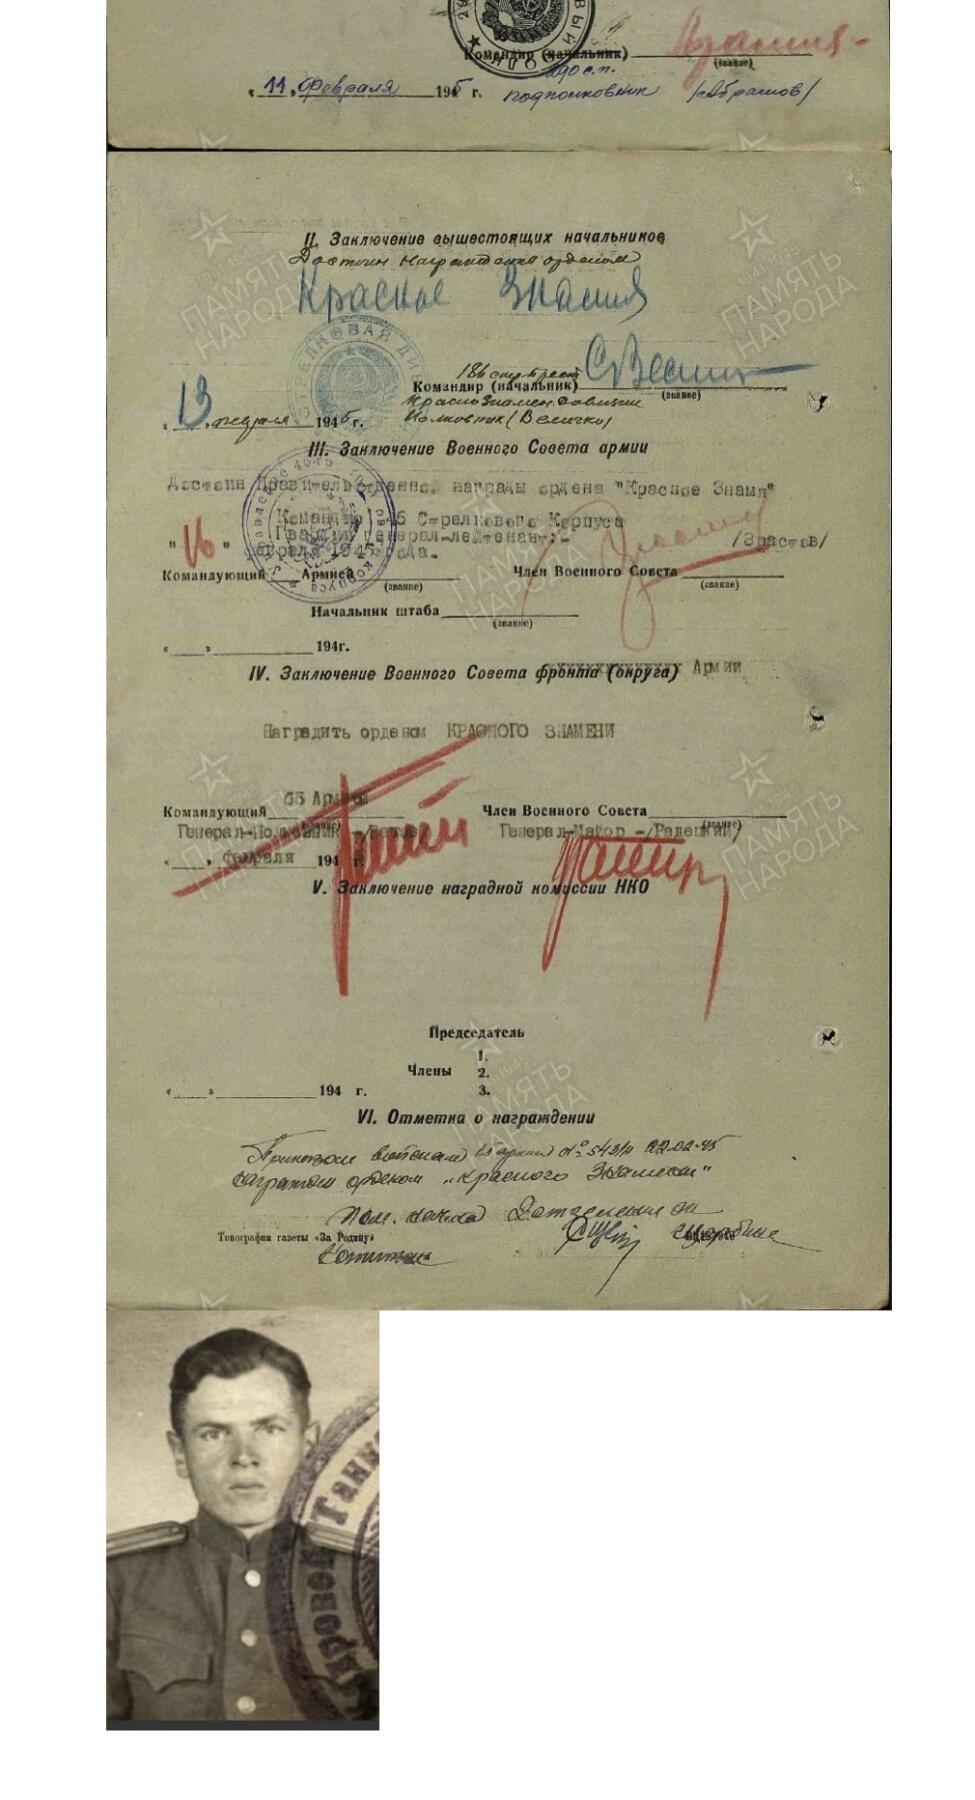 Командир (начальник)
(звание)
" 11 " Февраля 1945 г. подполковник /Абрамов/
II. Заключение вышестоящих начальников
Достоин награждения орденом
Красное Знамя
СТРЕЛКОВАЯ ДИВ
Командир (начальник)
(звание)
" 13 " февраля 1945 г. Полковник (Величко)
III. Заключение Военного Совета армии
Достоин Правительственной награды ордена "Красное Знамя"
Командир 46 Стрелкового Корпуса
Гвардии генерал-лейтенант:- /Эрастов/
"16" февраля 1945 года.
Командующий Армией
(звание)
Член Военного Совета
(звание)
Начальник штаба
(звание)
« » 194г.
IV. Заключение Военного Совета фронта (округа) Армии
Наградить орденом КРАСНОГО ЗНАМЕНИ
65 Армией
Командующий
Член Военного Совета
(звание)
Генерал-Полковник -/Батов/
Генерал-Майор -/Радецкий/
« » февраля 194
V. Заключение наградной комиссии НКО
Председатель
1.
Члены 2.
3.
« » 194 г.
VI. Отметка о награждении
Приказом войскам 65 армии № 543/н 22.02.45
награжден орденом „Красного Знамени"
Пом. нач-ка Отделения
Типография газеты «За Родину»
Капитан
Танко
ПАМЯТЬ
НАРОДА
ПАМЯТЬ
НАРОДА
ПАМЯТЬ
НАРОДА
ПАМЯТЬ
НАРОДА
ПАМЯТЬ
НАРОДА
ПАМЯТЬ
НАРОДА